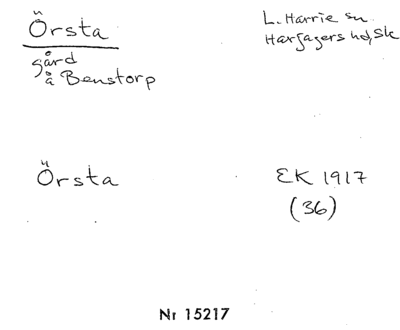 Örsta
gård
å Benstorp
L. Harrie sn
Harjagers hd, Sk
Örsta
EK 1917
(36)
Nr 15217